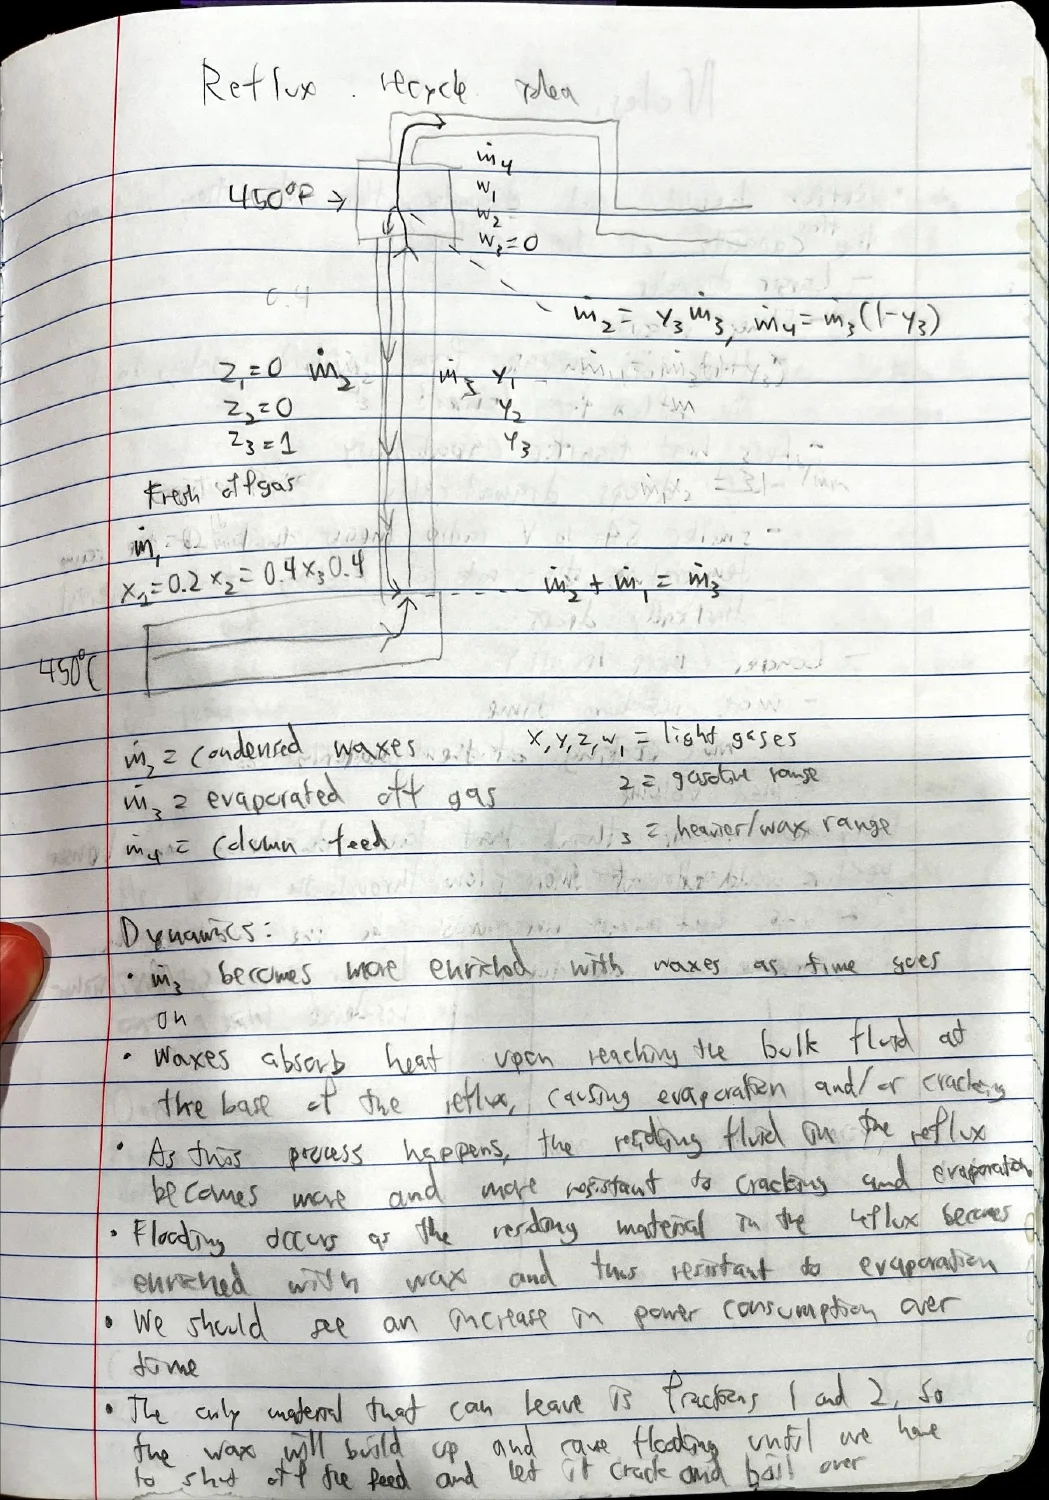 Reflux recycle idea
450°F →
ṁ4
w1
w2
w3 = 0
0.4
ṁ2 = y3 ṁ3, ṁ4 = ṁ3(1-y3)
z1 = 0 ṁ2
z2 = 0
z3 = 1
ṁ3 y1
y2
y3
Fresh offgas
ṁ1
x1 = 0.2 x2 = 0.4 x3 0.4
ṁ2 + ṁ1 = ṁ3
450°C
ṁ2 = condensed waxes
ṁ3 = evaporated off gas
ṁ4 = column feed
x, y, z, w, 1 = light gases
2 = gasoline range
3 = heavier/wax range
Dynamics:
• ṁ3 becomes more enriched with waxes as time goes
on
• Waxes absorb heat upon reaching the bulk fluid at
the base of the reflux, causing evaporation and/or cracking
• As this process happens, the residing fluid in the reflux
becomes more and more resistant to cracking and evaporation
• Flooding occurs as the residing material in the reflux becomes
enriched with wax and thus resistant to evaporation
• We should see an increase in power consumption over
time
• The only material that can leave is fractions 1 and 2, so
the wax will build up and cause flooding until we have
to shut off the feed and let it crack and boil over